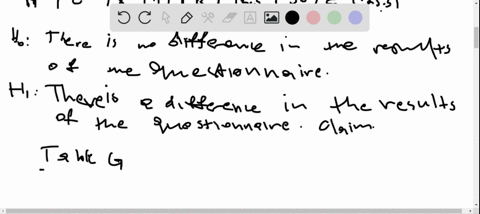 H₀: There is no difference in the results
of the Questionnaire.
H₁: There is a difference in the results
of the questionnaire. Claim
Table G